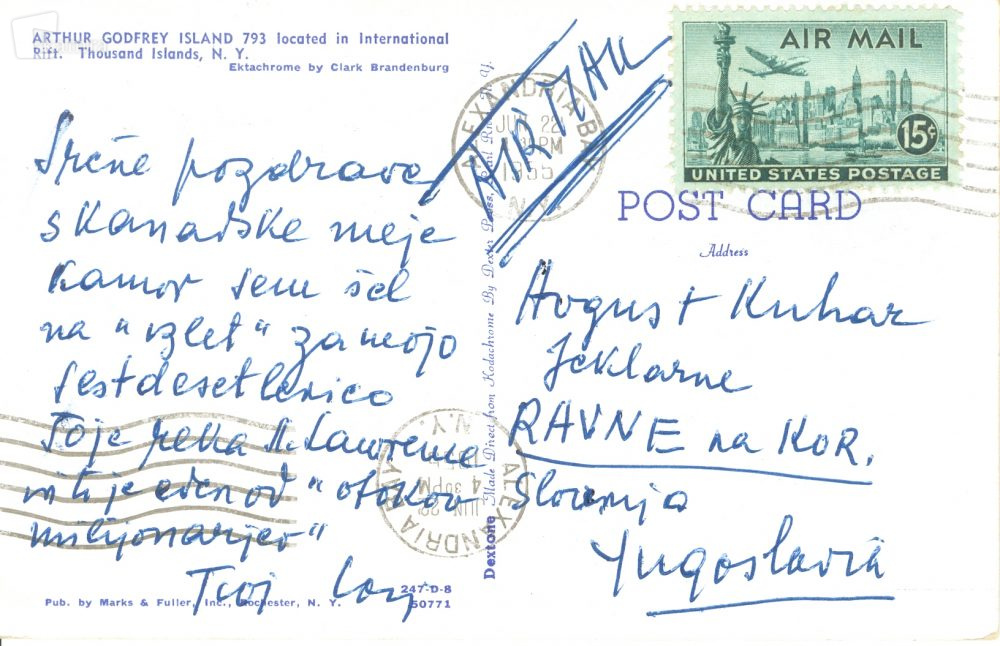 ARTHUR GODFREY ISLAND 793 located in International
Rift. Thousand Islands, N. Y.
Ektachrome by Clark Brandenburg
Srčne pozdrave
s Kanadske meje
kamor sem šel
na "izlet" za mojo
šestdesetletnico
To je reka St. Lawrence
in ti je eden od "otokov
milijonarjev"
Tvoj
Pub. by Marks & Fuller, Inc., Rochester, N. Y.
247-D-8
50771
Dextone Made Direct from Kodachrome By Dexter Press, Pearl River, N. Y.
ALEXANDRIA BAY
JUN 22
PM
1955
N.Y.
AIR MAIL
15¢
UNITED STATES POSTAGE
POST CARD
Address
Avgust Kuhar
Jeklarne
RAVNE na KOR.
Slovenija
Yugoslavia
ALEXANDRIA BAY
JUN 22
4 30PM
N.Y.